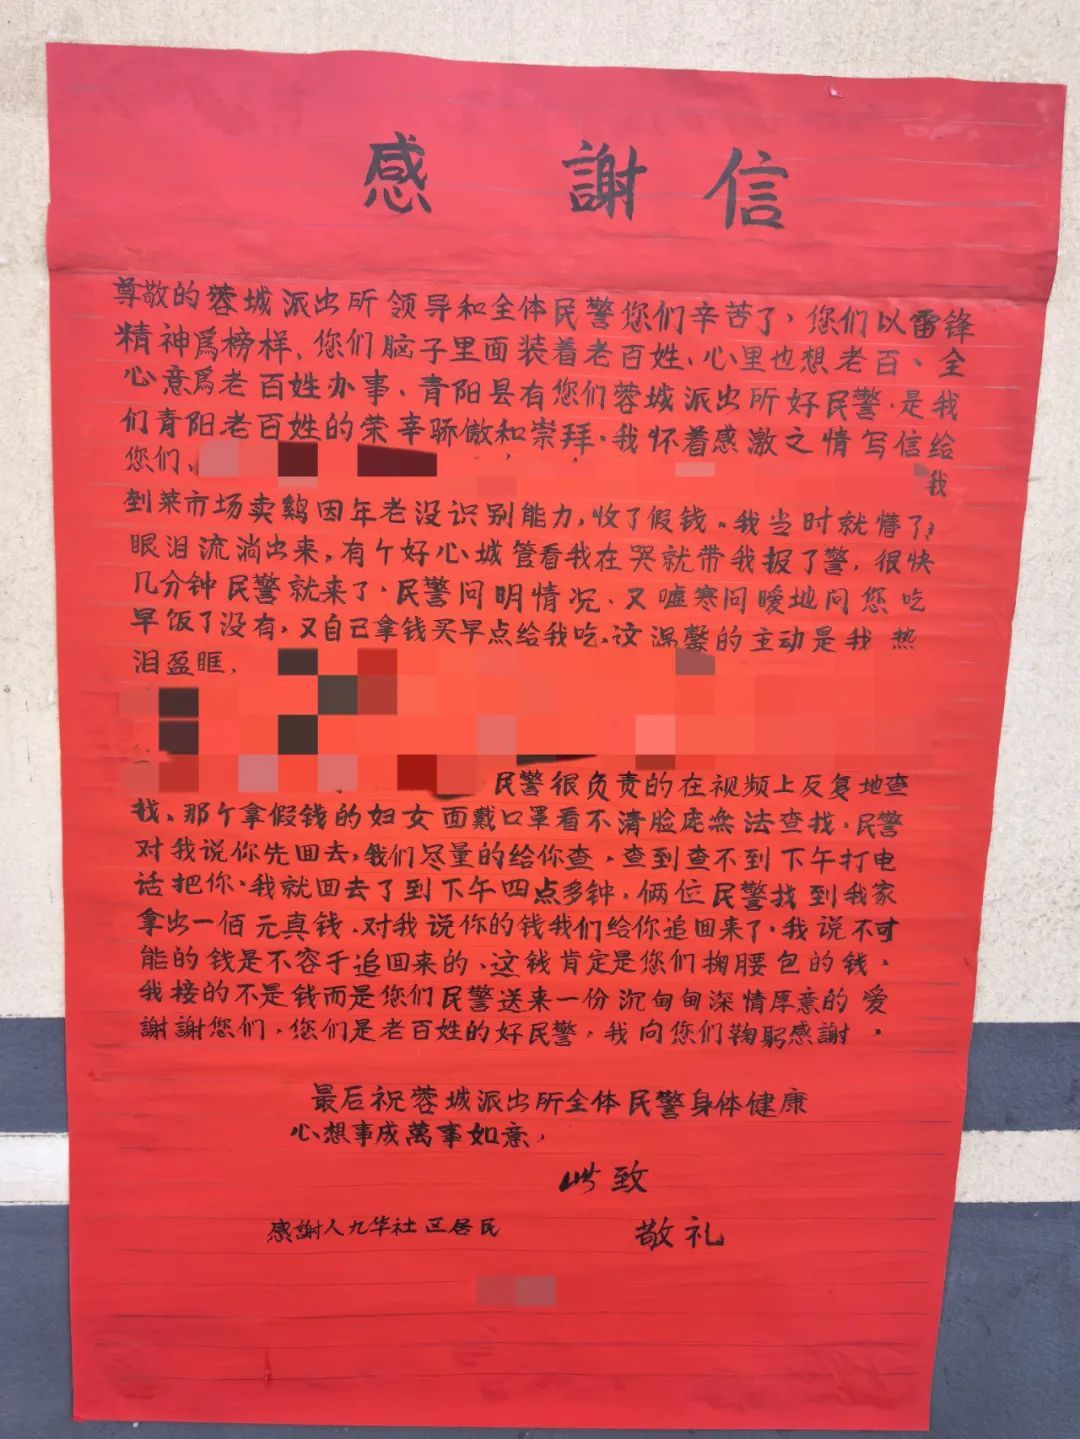 感謝信
尊敬的蓉城派出所领导和全体民警您们辛苦了，您们以雷锋
精神爲榜样、您们脑子里面装着老百姓、心里也想老百、全
心意爲老百姓办事、青阳县有您们蓉城派出所好民警、是我
们青阳老百姓的荣幸骄傲和崇拜。我怀着感激之情写信给
您们、
我
到菜市场卖鷄因年老没识别能力，收了假钱。我当时就懵了，
眼泪流淌出来，有个好心城管看我在哭就带我报了警，很快
几分钟民警就来了．民警问明情况．又嘘寒问暧地问您吃
早饭了没有，又自己拿钱买早点给我吃、这温馨的主动是我热
泪盈眶．
民警很负责的在视频上反复地查
找、那个拿假钱的妇女面戴口罩看不清脸庞無法查找．民警
对我说你先回去，我们尽量的给你查，查到查不到下午打电
话把你．我就回去了到下午四点多钟．俩位民警找到我家
拿出一佰元真钱．对我说你的钱我们给你追回来了．我说不可
能的钱是不容于追回来的、这钱肯定是您们掏腰包的钱．
我接的不是钱而是您们民警送来一份沉甸甸深情厚意的爱
謝謝您们．您们是老百姓的好民警．我向您们鞠躬感謝．
最后祝蓉城派出所全体民警身体健康
心想事成萬事如意，
此致
感謝人九华社区居民
敬礼